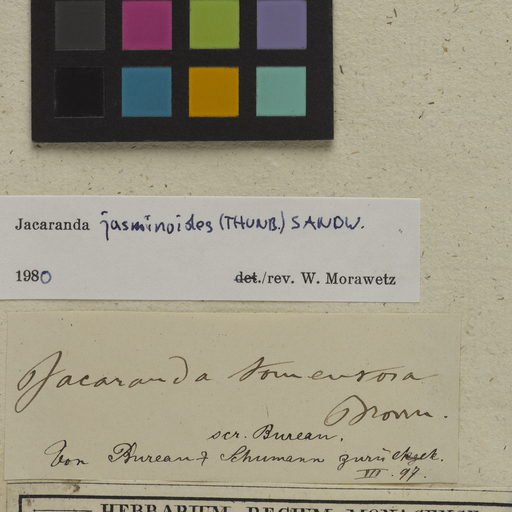 Jacaranda jasminoides (THUNB.) SANDW.
1980 det./rev. W. Morawetz
Jacaranda tomentosa
Brown.
scr. Bureau.
Von Bureau & Schumann zurück.
III. 97.
HERBARIUM REGIUM MONACENSE